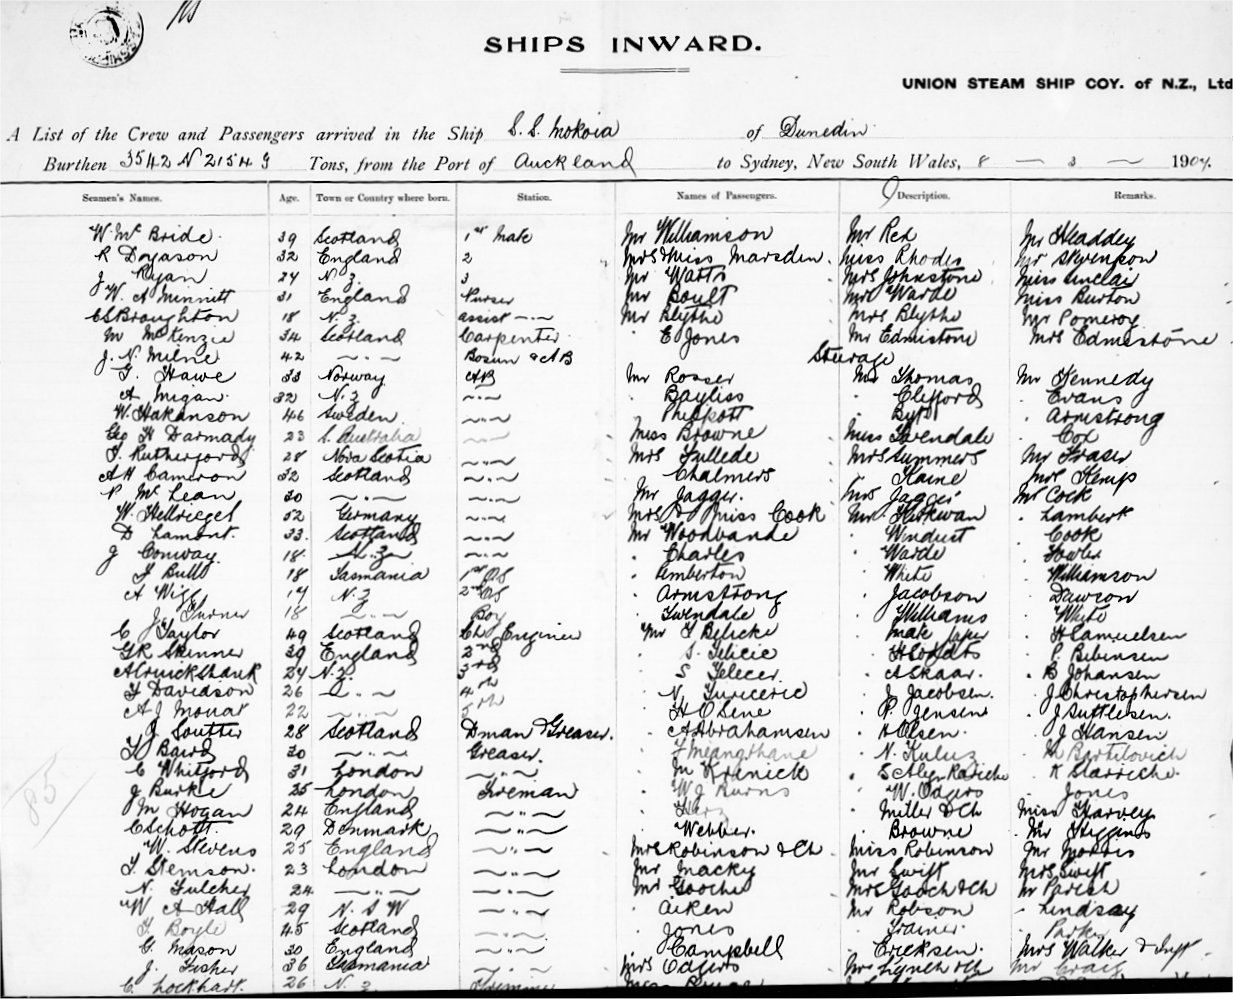 SHIPS INWARD.
UNION STEAM SHIP COY. of N.Z., Ltd
A List of the Crew and Passengers arrived in the Ship S. S. Mokoia of Dunedin
Burthen 3542 N 2154 Tons, from the Port of Auckland to Sydney, New South Wales, 8 — 3 — 1904.
Seamen's Names. Age. Town or Country where born. Station. Names of Passengers. Description. Remarks.
W. Mc Bride 39 Scotland 1st Mate Mr Williamson Mr Red Mr Headdey
R Doyason 32 England 2 Mrs & Miss Marsden Miss Rhodes Mr Stevenson
J Ryan 24 N.Z. 3 Mr Watts Mrs Johnstone Miss Sinclair
W. A Minnitt 31 England Purser Mr Boult Mrs Warde Miss Burton
C S Broughton 18 N.Z. assist —"— Mr Blythe Mrs Blythe Mr Pomeroy
M McKenzie 34 Scotland Carpenter E Jones Mr Edmistone Mrs Edmistone
J. N. Milne 42 —"— Bosun & AB Steerage
G. Hawe 33 Norway AB Mr Rosser Thomas Mr Kennedy
A Migan 32 N.Z —"— Bayliss Clifford Evans
W. Hakanson 46 Sweden —"— Philpott Armstrong
Geo H Darmady 23 S. Australia —"— Miss Browne Miss Tavendale Cox
J. Rutherford 28 Nova Scotia —"— Mrs Tullede Mrs Summers Mr Fraser
A H Cameron 32 Scotland —"— Chalmers Kaine Mrs Kemp
P McLean 30 —"— —"— Mr Jagger. Mrs Jagger Mr Cock
W. Hellriegel 52 Germany —"— Mrs & Miss Cook Mr Kirkwan Lambert
D Lamont. 33. Scotland —"— Mr Woodbande Windust Cook
J Conway 18. N.Z —"— Charles Warde Fowler
J Bull 18 Tasmania 1st OS Emberton White Williamson
A Wigg 17 N.Z 2nd OS Armstrong Jacobson Dawson
J. Turner 18 —"— Boy Twendale Williams White
C Taylor 49 Scotland Ch Engineer Mr H Camuelsen
G R Skinner 39 England 2nd S. Felicie P. Bibinsen
A Cruickshank 24 N.Z. 3rd S A Skaar. B Johansen
F Davidson 26 —"— 4th N. J Jacobsen. J Christophersen
A J Mouat 22 —"— 5th H Olene P. Jensen J Suttlesen.
J. Soutter 28 Scotland Dman & Greaser. A Abrahamsen H Olsen. J Hansen
T. Baird 30 —"— Greaser. N. Kuluz M Bartilovich
C Whitford 31 London —"— M Krinick K Starriche.
J Burke 25 London Fireman W J Burns W. Odgers Jones
M Hogan 24 England —"— Miller & Ch Miss Harvey
C Schott 29 Denmark —"— Webber. Browne Mr Higgins
W. Stevens 25 England —"— Mrs Robinson & Ch Miss Robinson Mr Morris
T. Stemson. 23 London —"— Mr Macky Mr Swift Mrs Swift
N. Fulcher 24 —"— —"— Mr Gooch Mrs Gooch & Ch Mr Parish
W A Hall 29 N. S W —"— Aiken Mr Robson Lindsay
T. Boyle 45 Scotland —"— Jones Trainer. Parker
G. Mason 30 England —"— Campbell Ericksen. Mrs Walker & Inft
J. Fisher 36 Tasmania —"— Mrs Odgers Mrs Lynch & Ch Mr Craig
C. Lockhart. 26 N.Z Trimmer
85